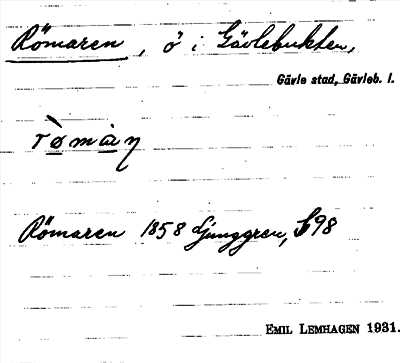 Römaren, ö i Gävlebukten,
Gävle stad, Gävleb. l.
rø̀màn
Römaren 1858 Ljunggren, S98
EMIL LEMHAGEN 1931.